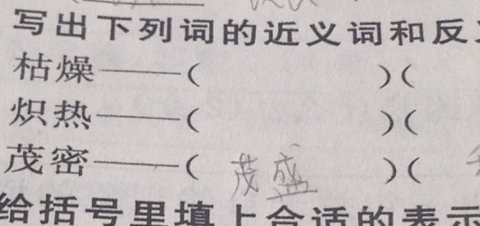 写出下列词的近义词和反
枯燥——( )(
炽热——( )(
茂密——(茂盛)(
给括号里填上合适的表示